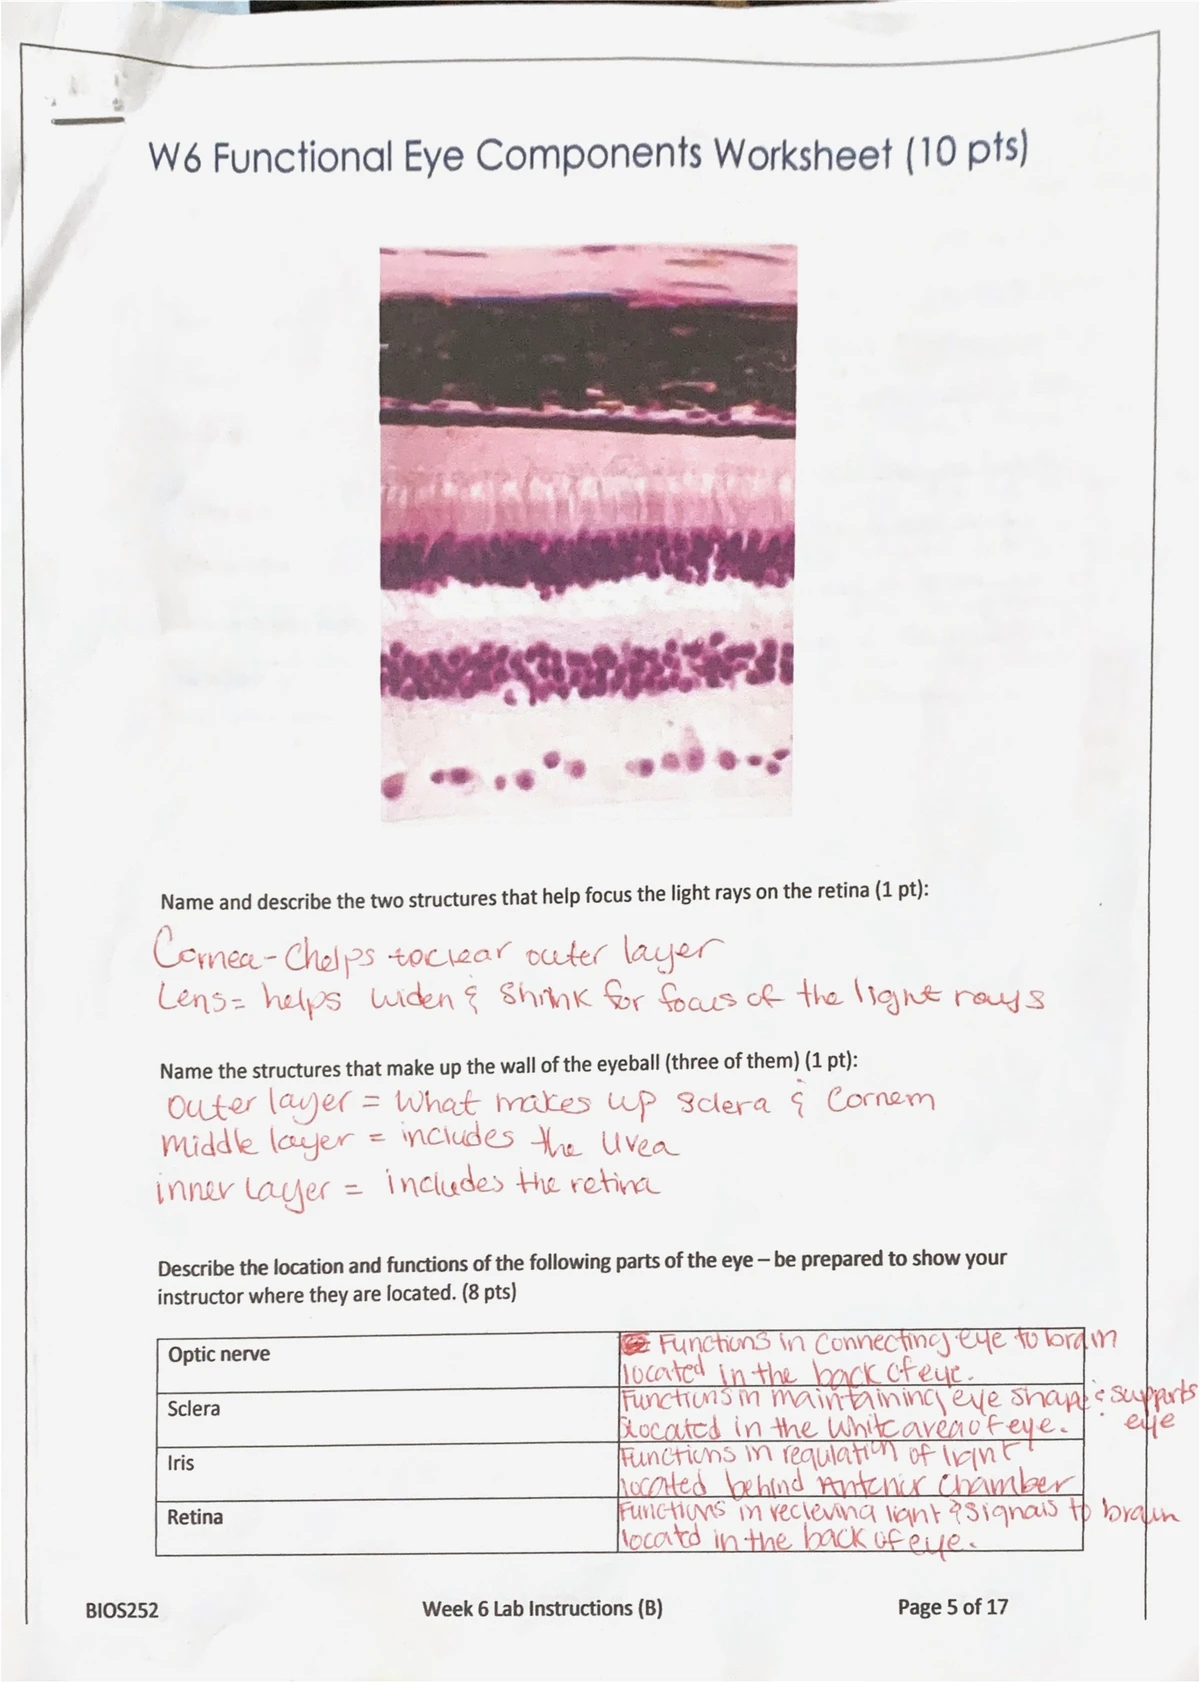 W6 Functional Eye Components Worksheet (10 pts)
Name and describe the two structures that help focus the light rays on the retina (1 pt):
Cornea - Chelps to clear outer layer
Lens = helps widen & shrink for focus of the light rays
Name the structures that make up the wall of the eyeball (three of them) (1 pt):
Outer layer = What makes up sclera & Cornem
middle layer = includes the Uvea
inner layer = includes the retina
Describe the location and functions of the following parts of the eye – be prepared to show your
instructor where they are located. (8 pts)
Optic nerve
Functions in connecting eye to brain
located in the back of eye.
Sclera
Functions in maintaining eye shape & supports
eye
located in the white area of eye.
Iris
Functions in regulation of light
located behind Anterior Chamber
Retina
Functions in recieving light & signals to brain
locatd in the back of eye.
BIOS252
Week 6 Lab Instructions (B)
Page 5 of 17